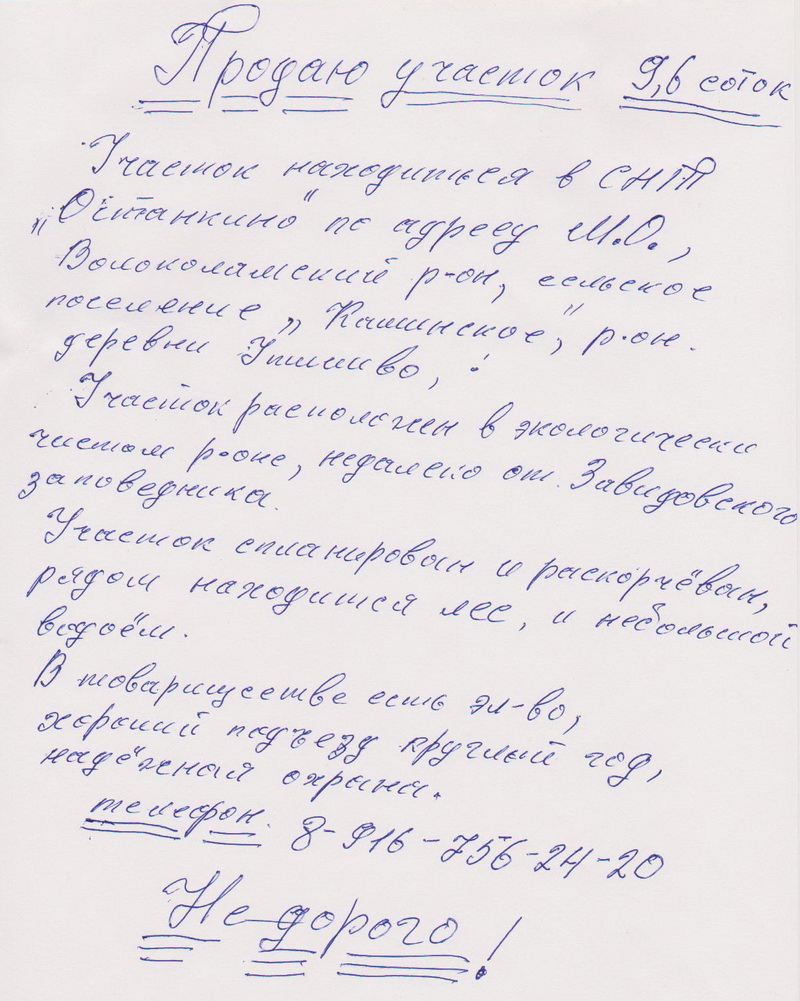 Продаю участок 9,6 соток
Участок находиться в СНТ
„Останкино" по адресу М.О.,
Волоколамский р-он, сельское
поселение „Кашинское", р-он.
деревни
Участок расположен в экологически
чистом р-оне, недалеко от Завидовского
заповедника.
Участок спланирован и раскорчёван,
рядом находится лес, и небольшой
водоём.
В товариществе есть эл-во,
хороший подъезд круглый год,
надёжная охрана.
телефон. 8-916-756-24-20
Не дорого!